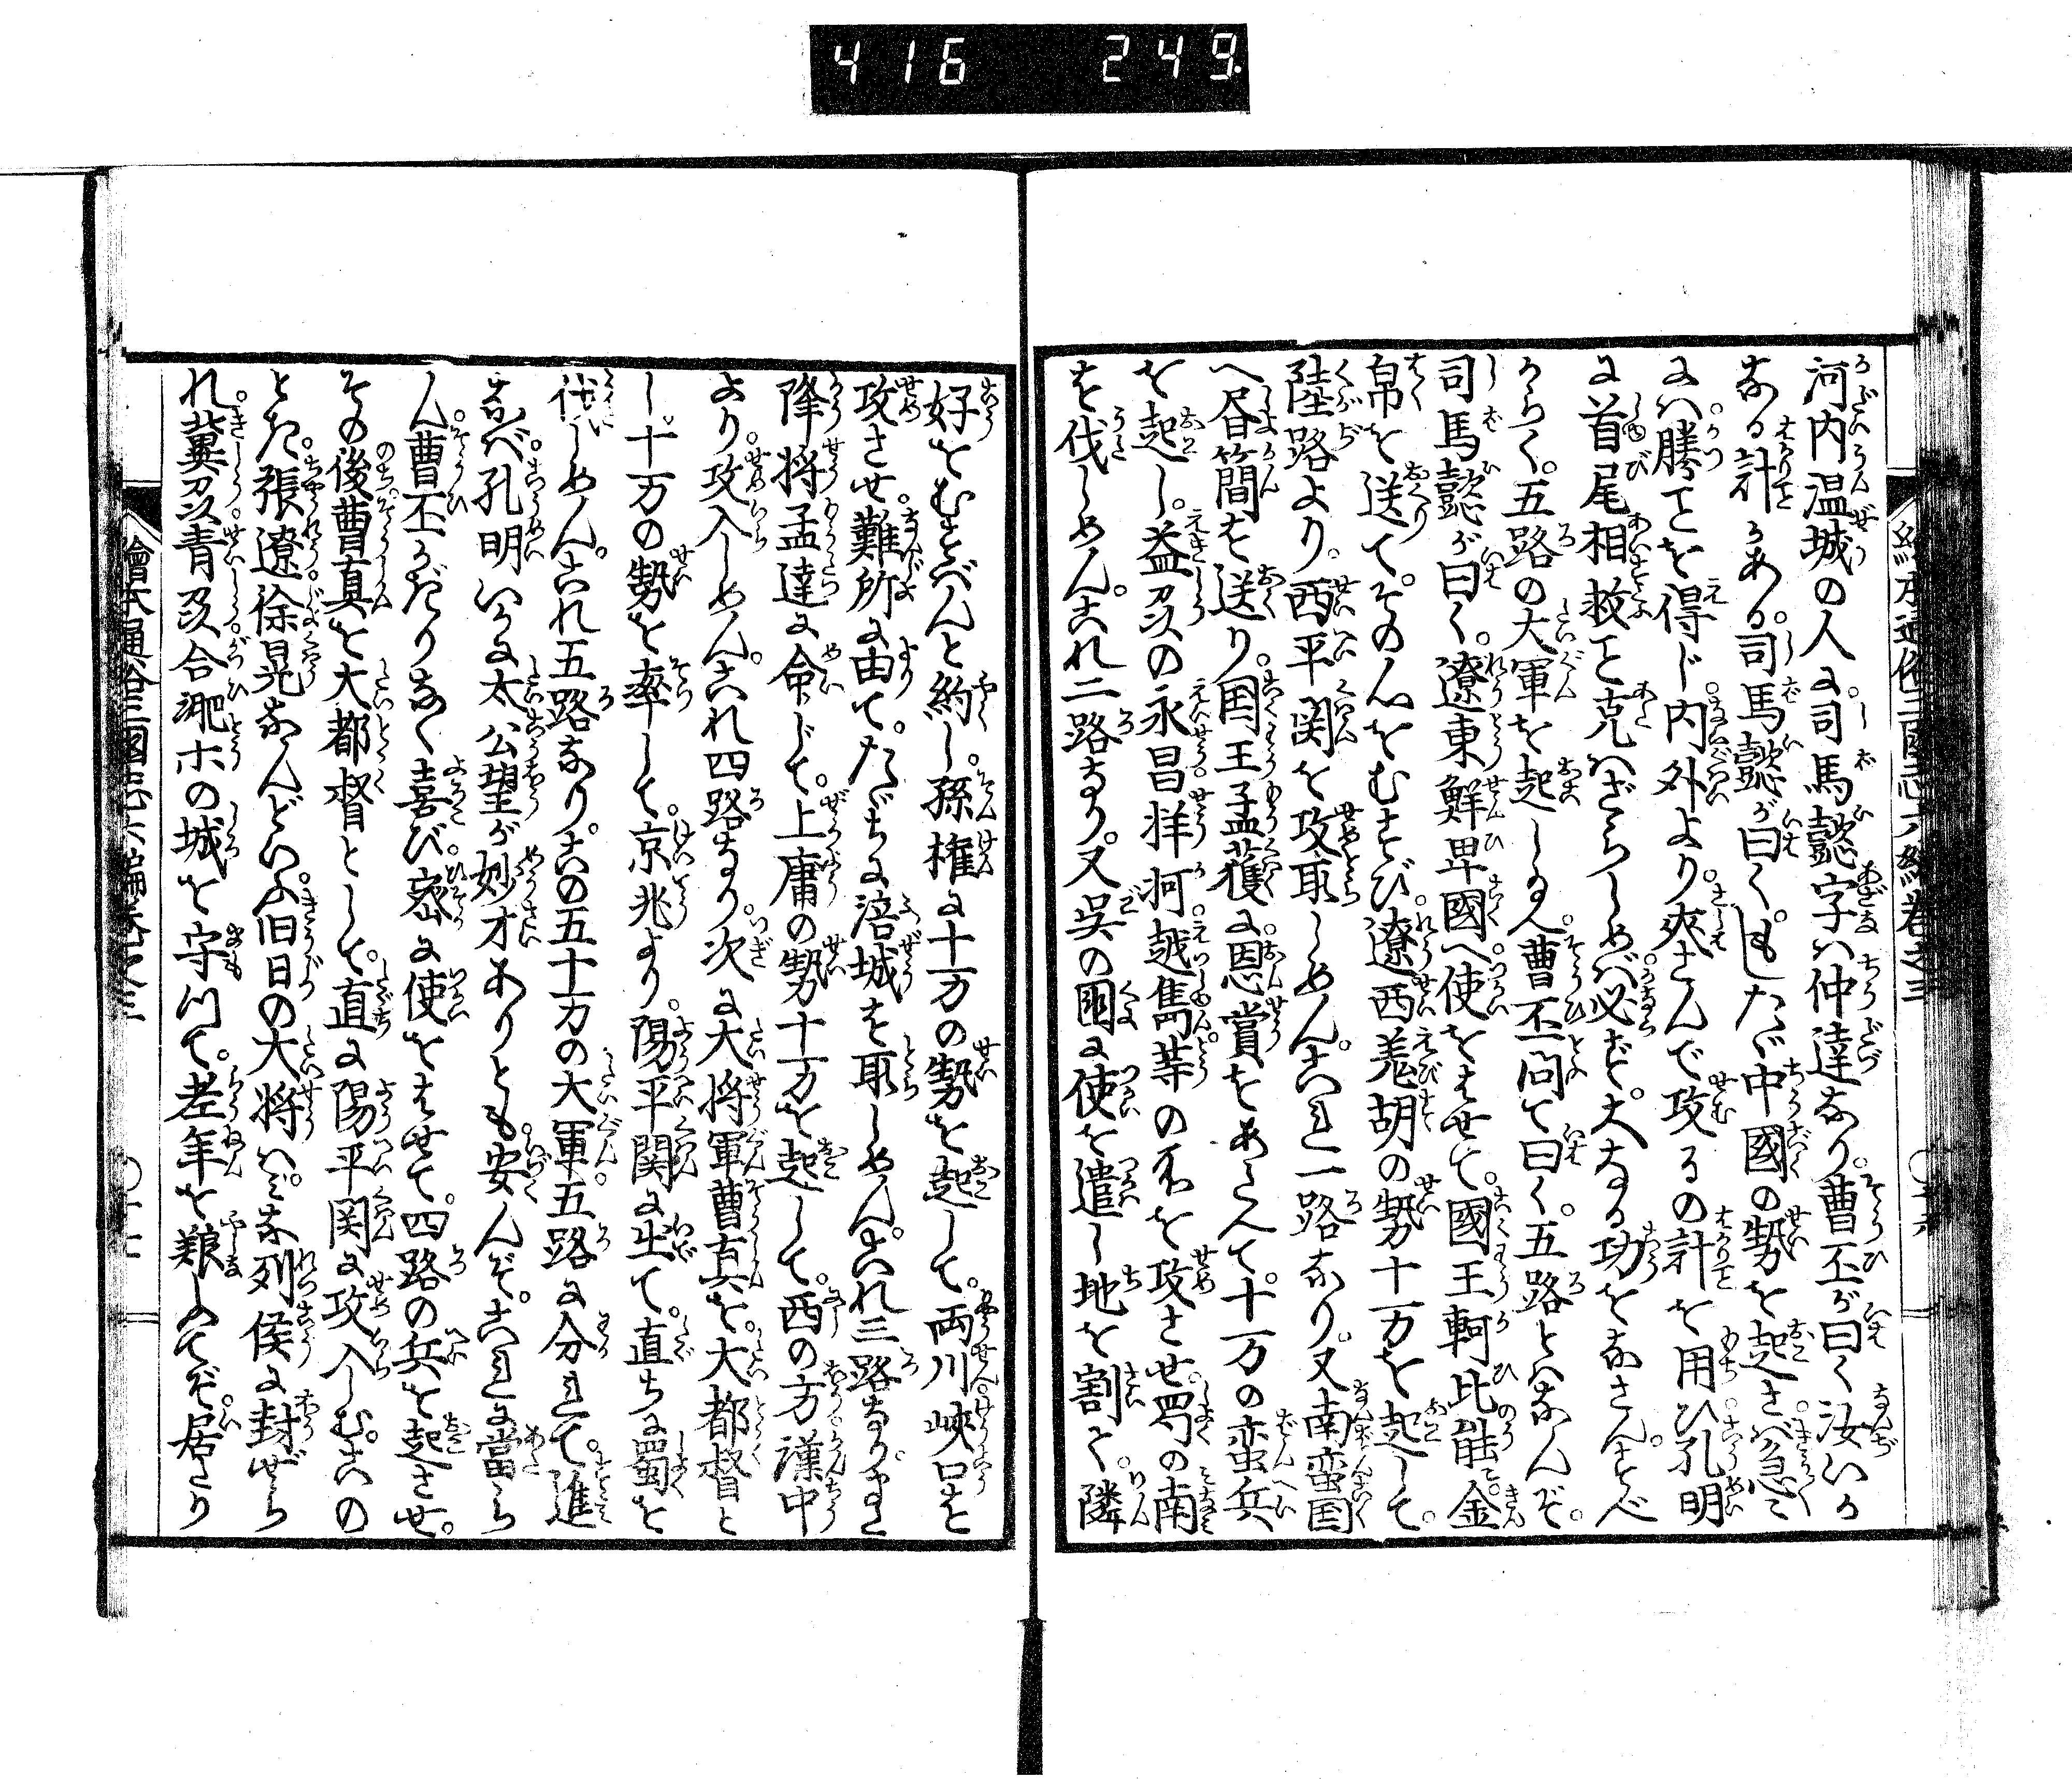 416 249
河内温城の人に。司馬懿字ハ仲達なり。曹丕が曰く汝いか
なる計かある。司馬懿が曰く。もしたゞ中國の勢を起さバ。急に
にハ。勝ことを得じ。内外より。夾さんで攻るの計を用ひ。孔明
に首尾相救こと克ハざらしめバ。必ず。大なる功をなさん。すべ
からく。五路の大軍を起しるん。曹丕問て曰く。五路とハなんぞ。
司馬懿が曰く。遼東鮮卑國へ。使をはせて。國王軻比能に。金
帛を送て。そのんをむすび。遼西羗胡の勢十万を起して。
陸路より。西平関を攻取しめん。これ一路なり。又南蛮国
へ昼簡を送り。国王孟獲に。恩賞をあたへて。十万の蛮兵
を起し。益州の永昌。牂牁。越雋等の糸を攻させ。蜀の南
を伐しめん。これ二路なり。又呉の国に使を遣し地を割て。隣
好をむすべんと約し。孫権に十万の勢を起して。両川。峽口を
攻させ。難所に由て。たゞちに涪城を取しめん。これ三路なり。また
降将孟達に命じて。上庸の勢十万を起して。西の方漢中
より。攻入しめん。これ四路なり。次に大将軍曹真を。大都督と
し。十万の勢を率して。京兆より。陽平関に出て。直ちに蜀を
伐しめん。これ五路なり。この五十万の大軍。五路に分れて。進
なバ。孔明いかに太公望が妙才ありとも。安んぞ。これに當ら
ん。曹丕かぎりなく喜び。密に使をはせて。四路の兵を起させ。
その後。曹真を大都督として。直に陽平関に攻入しむ。この
とき。張遼。徐晃なんどいふ。旧日の大将ハ。みな列侯に封ぜら
れ。冀州。青州。合淝ホの城を守つて。老年を養しめてぞ。居たり
繪本通俗三國志六編巻之三